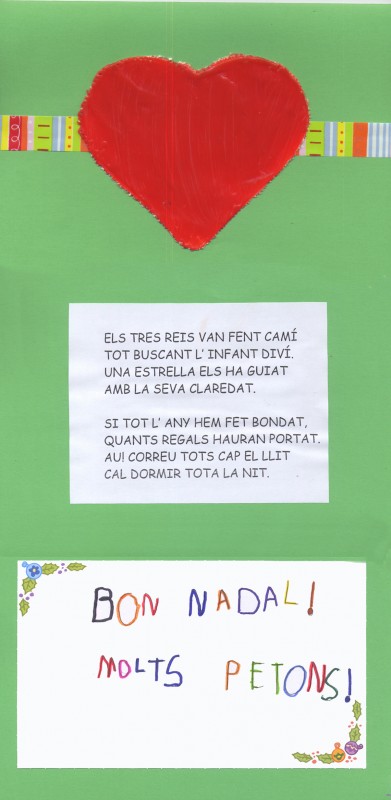 ELS TRES REIS VAN FENT CAMÍ
TOT BUSCANT L' INFANT DIVÍ.
UNA ESTRELLA ELS HA GUIAT
AMB LA SEVA CLAREDAT.
SI TOT L' ANY HEM FET BONDAT,
QUANTS REGALS HAURAN PORTAT.
AU! CORREU TOTS CAP EL LLIT
CAL DORMIR TOTA LA NIT.
BON NADAL!
MOLTS PETONS!